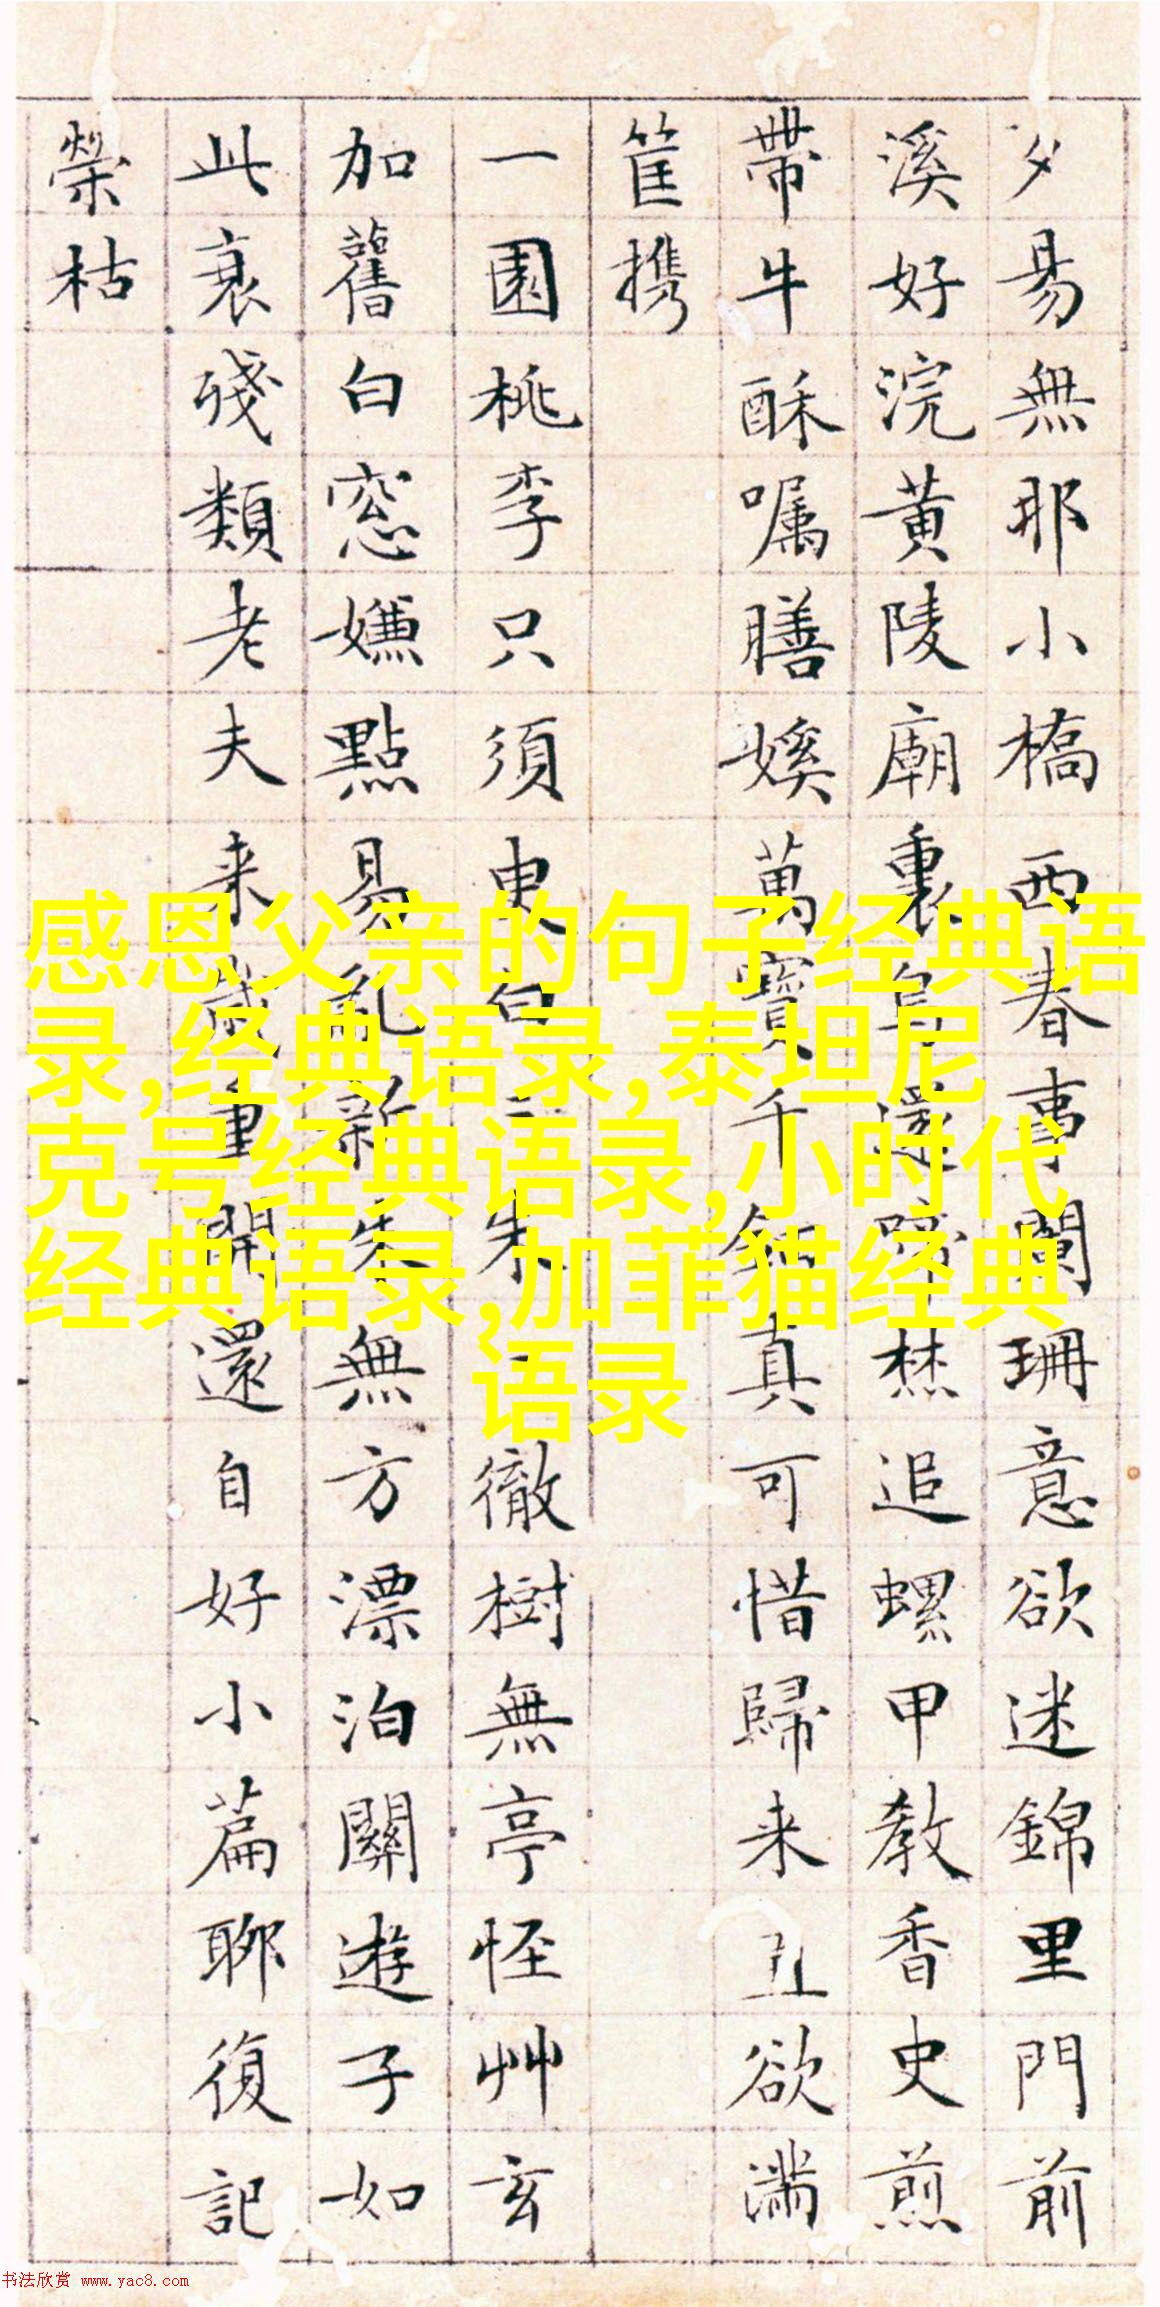 夕易無耶小橋西春事闌珊意欲迷錦里門前
溪好浣黃陵廟裏鳥還啼焚追螺甲教香史煎
帶牛酥嘱膳媛萬寶千釵真可惜歸来丑欲滿
筐携
一園桃李只須臾白白朱朱徹樹無亭怪艸玄
加舊白窓嫌點易亂新朱無方漂泊關遊子如
此衰殘類老夫来歲重開還自好小篇聊復記
榮枯
感恩父亲的句子经典语
录,经典语录,泰坦尼
克号经典语录,小时代
经典语录,加菲猫经典
语录
书法欣赏 www.yac8.com